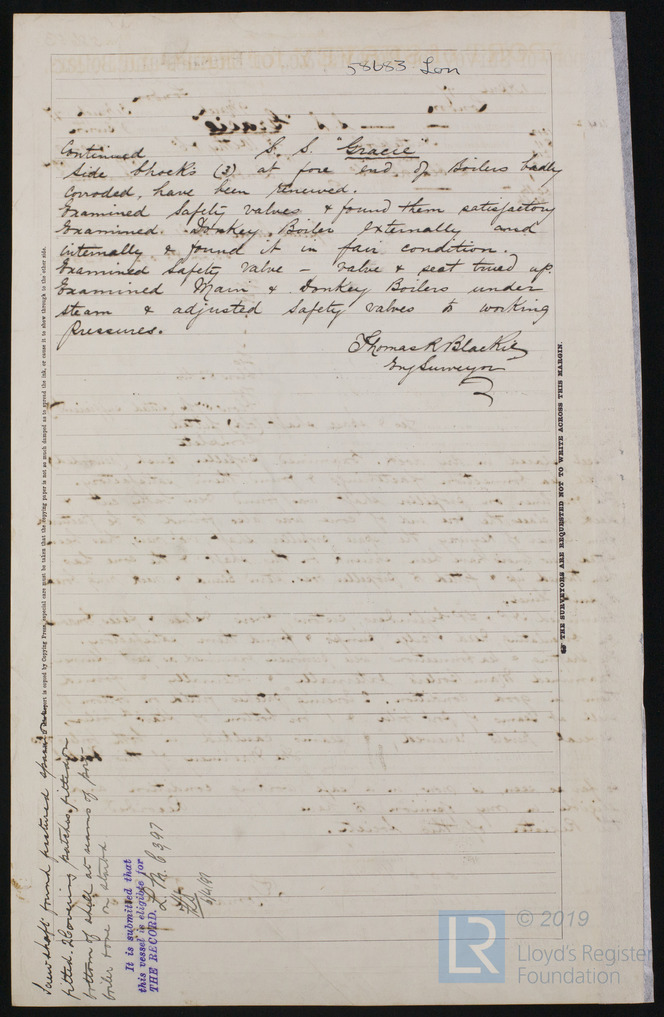 58683 Lon
Continued S. S. "Gracie"
Side chocks (3) at fore end of Boilers badly
corroded, have been renewed.
Examined Safety valves & found them satisfactory
Examined Donkey Boiler externally and
internally & found it in fair condition.
Examined safety valve – valve & seat trued up.
Examined Main & Donkey Boilers under
steam & adjusted safety valves to working
pressures.
Thomas R Blackie
Eng Surveyor
report is copied by Copying Press, especial care must be taken that the copying paper is not so much damped as to spread the ink, or cause it to show through to the other side.
☞ THE SURVEYORS ARE REQUESTED NOT TO WRITE ACROSS THIS MARGIN.
Screw shaft found fractured spare one
fitted. 2 Covering patches fitted on
bottom of shell at seams of port
boiler & one on starbd
It is submitted that
this vessel is eligible for
THE RECORD. LMC 3,97
© 2019
LR
Lloyd's Register
Foundation